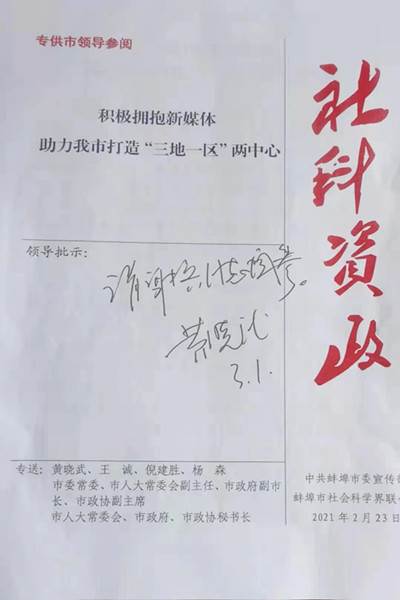 专供市领导参阅
积极拥抱新媒体
助力我市打造“三地一区”两中心
社科资政
领导批示：
请
阅参。
黄晓武
3.1.
专送：黄晓武、王　诚、倪建胜、杨　森
市委常委、市人大常委会副主任、市政府副市
长、市政协副主席
市人大常委会、市政府、市政协秘书长
中共蚌埠市委宣传
蚌埠市社会科学界联
2021 年 2 月 23 日